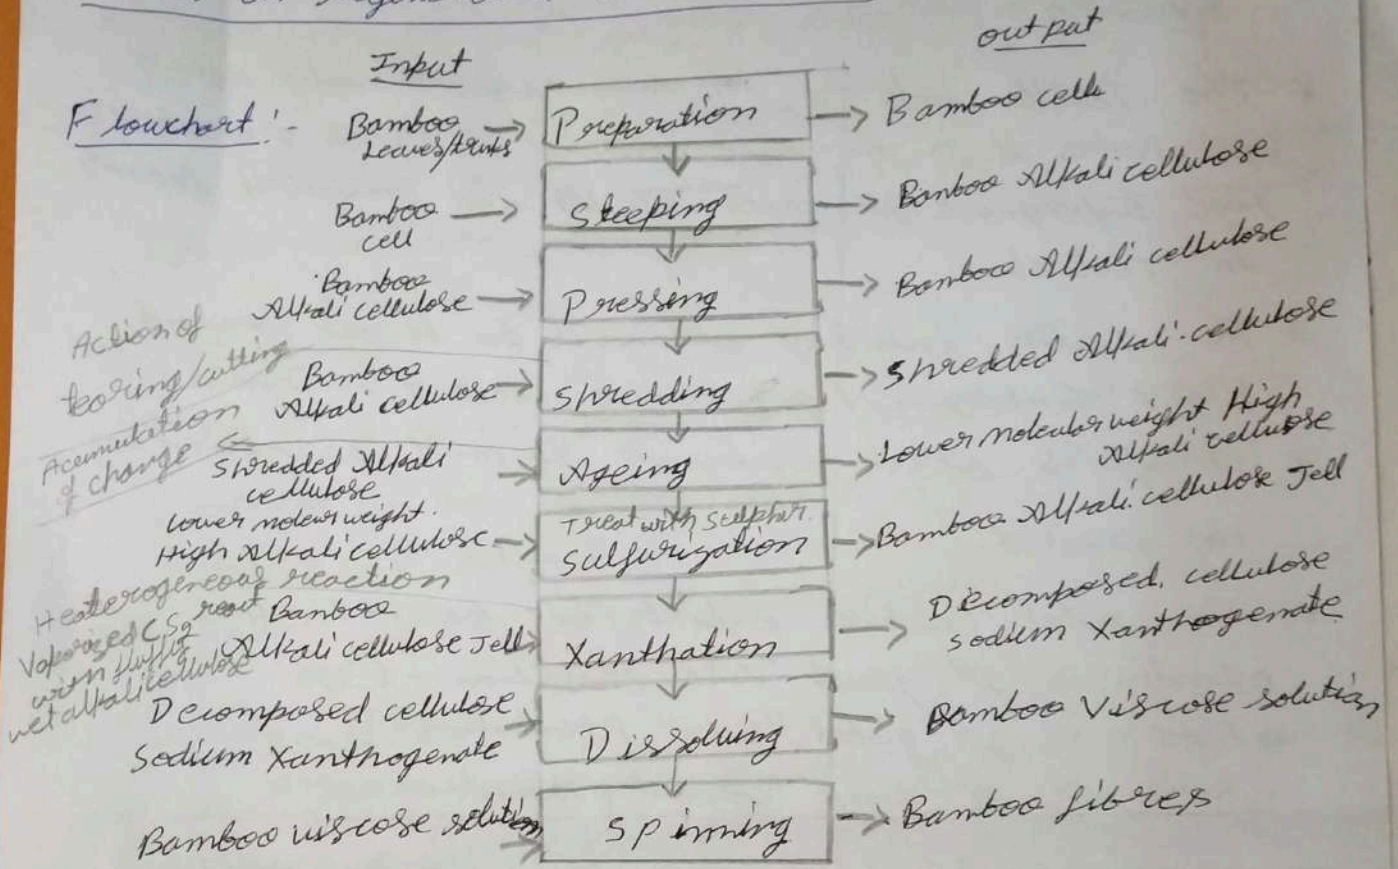 Input
output
Flowchart :-
Bamboo
Leaves/trunks
Preparation
Bamboo cells
Bamboo
cell
Steeping
Bamboo Alkali cellulose
Bamboo
Alkali cellulose
Pressing
Bamboo Alkali cellulose
Action of
tearing/cutting
Bamboo
Alkali cellulose
Shredding
Shredded Alkali cellulose
Acumulation
of change
Shredded Alkali
cellulose
Ageing
Lower molecular weight High
Alkali cellulose
Lower molecur weight.
High Alkali cellulose
Treat with Sulphur
Sulfurization
Bamboo Alkali cellulose Jell
Heaterogeneous reaction
Vaporized CS2 react
with fluffy
wet alkali cellulose
Bamboo
Alkali cellulose Jell
Xanthation
Decomposed cellulose
sodium Xanthogenate
Decomposed cellulose
Sodium Xanthogenate
Dissolving
Bamboo Viscose solution
Bamboo viscose solution
Spinning
Bamboo fibres